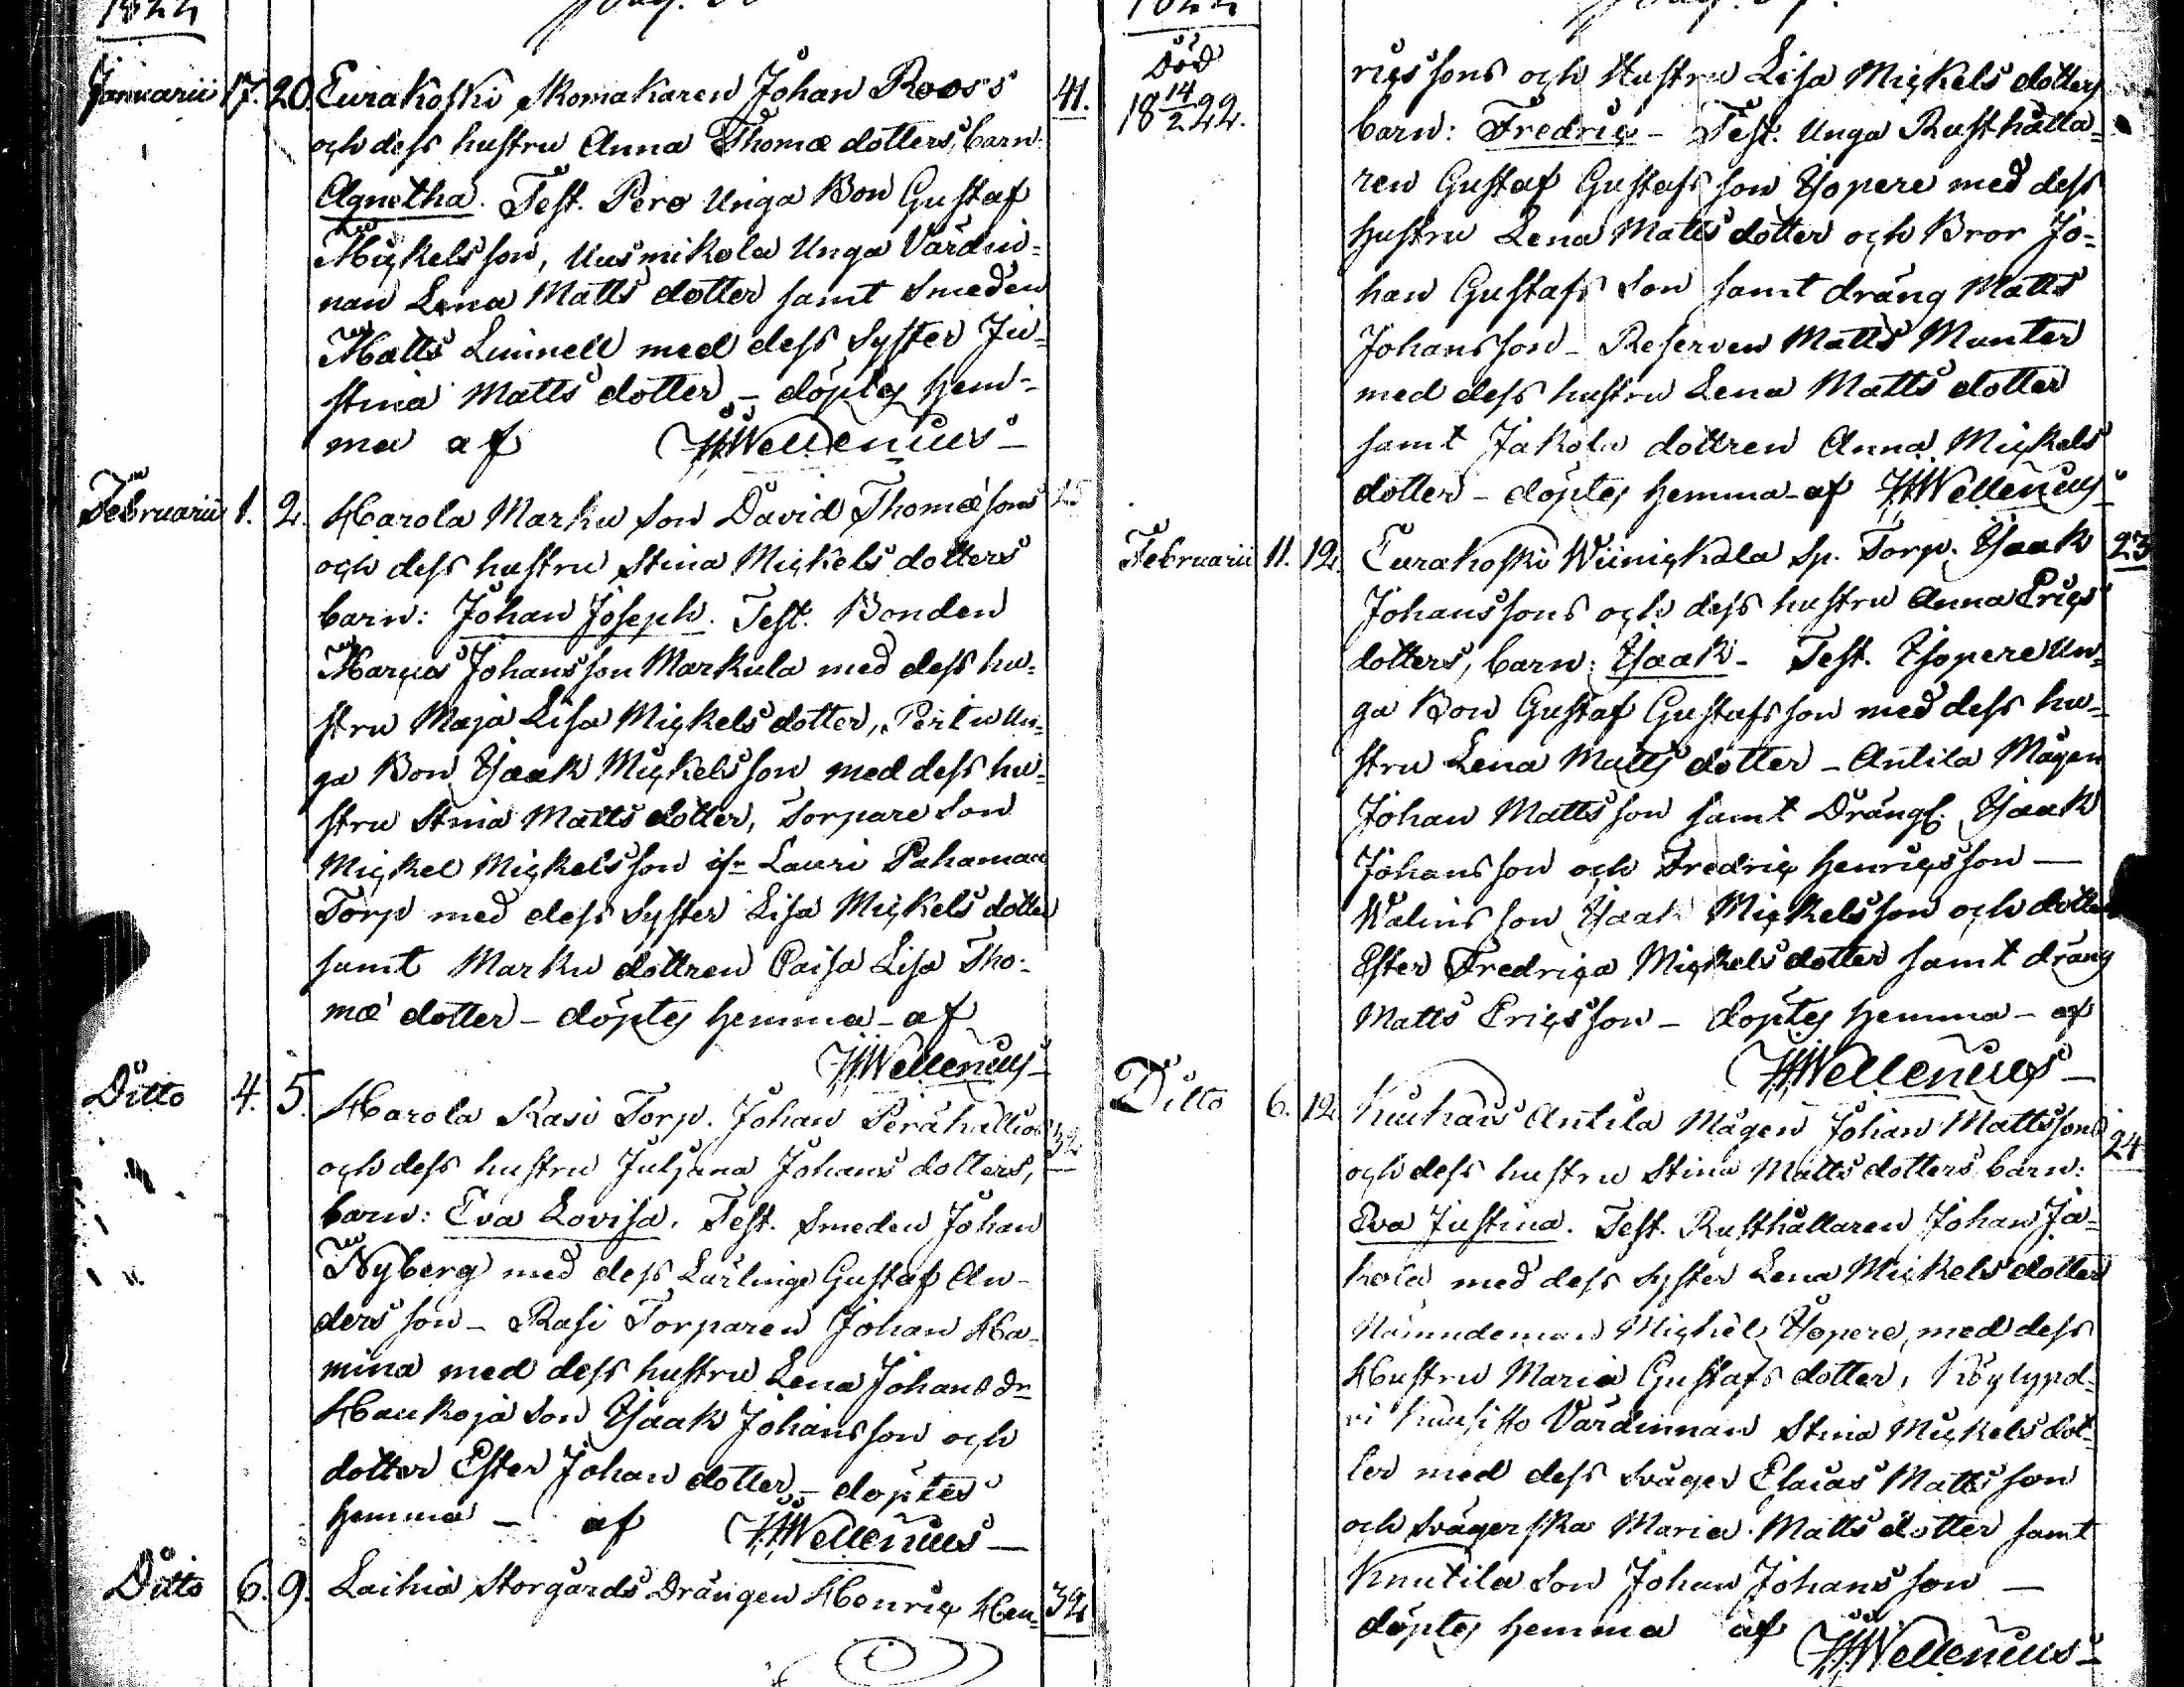 1822
Januarii 17. 20. Eurakoski Skomakaren Johan Rooss 41.
och dess hustru Anna Thomæ dotters, barn:
Agnetha. Test. Pero Unga Bon Gustaf
Mickelsson, Uusmikola Unga Värdin-
nan Lena Matts dotter samt Smeden
Matts Linnell med dess Syster Ju-
stina Matts dotter – döptes hem-
ma af HWellenius –
Februarii 1. 2. Harola Marku Son David Thomæ sons 25
och dess hustru Stina Mickels dotters
barn: Johan Joseph. Test. Bonden
Marcus Johansson Markula med dess hu-
stru Maja Lisa Mickels dotter, Pertu Un-
ga Bon Isaak Mickelsson med dess hu-
stru Stina Matts dotter, Torpare Son
Mickel Mickelsson ifr Lauri Pahamaa
Torp med dess Syster Lisa Mickels dotter
samt Marku dottren Caisa Lisa Tho-
mæ dotter – döptes hemma – af
HWellenius –
Ditto 4. 5. Harola Rasi Torp. Johan Peräkallios 32
och dess hustru Juljana Johans dotters,
barn: Eva Lovisa. Test. Smeden Johan
Nyberg med dess Lärlinge Gustaf An-
ders son – Rasi Torparen Johan Ha-
mina med dess hustru Lena Johans dr
Haukoja Son Isaak Johansson och
dotter Ester Johan dotter – döptes
hemma – af HWellenius –
Ditto 6. 9. Laihia Storgårds Drängen Henric Hen- 32
1822
Död
18 14/2 22.
rics sons och Hustru Lisa Mickels dotters
barn: Fredric – Test. Unga Rusthålla-
ren Gustaf Gustafs son Isopere med dess
Hustru Lena Matts dotter och Bror Jo-
han Gustafs Son samt dräng Matts
Johansson – Reserven Matts Munter
med dess hustru Lena Matts dotter
samt Jakola dottren Anna Mickels
dotter – döptes hemma – af HWellenius –
Februarii 11. 12. Eurakoski Wiinickala Sp. Torp. Isaak 23
Johanssons och dess hustru Anna Erics
dotters, barn: Isaak – Test. Isopere Un-
ga Bon Gustaf Gustafsson med dess hu-
stru Lena Matts dotter – Antila Mågen
Johan Matts son samt Drängl. Isaak
Johansson och Fredric Henricsson –
Walins son Isaak Mickelsson och dotter
Ester Fredrica Mickels dotter samt dräng
Matts Ericsson – döptes hemma – af
HWellenius –
Ditto 6. 12. Kiukais Antila Mågen Johan Mattssons 24
och dess hustru Stina Matts dotters barn:
Eva Justina. Test. Rusthållaren Johan Ja-
kola med dess Syster Lena Mickels dotter
Nämndeman Mickel Isopere, med dess
Hustru Maria Gustafs dotter, Köylypol-
vi Värdinnan Stina Mickels dot-
ter med dess Svåger Esaias Matts son
och Svägerska Maria Matts dotter samt
Knutila Son Johan Johans son –
döptes hemma af HWellenius –